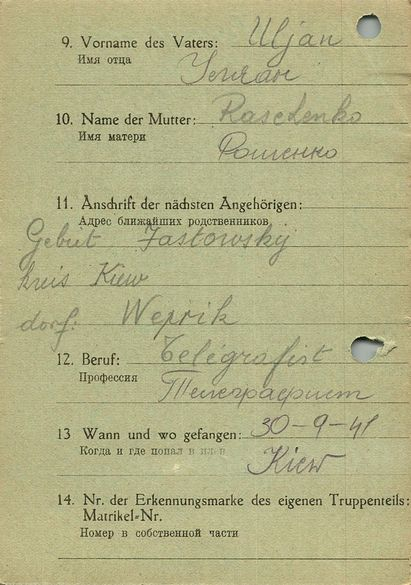 9. Vorname des Vaters: Uljan
Имя отца
10. Name der Mutter: Raschenko
Имя матери
Рашенко
11. Anschrift der nächsten Angehörigen:
Адрес ближайших родственников
Gebiet Fastowsky
kreis Kiew
dorf: Weprik
12. Beruf: Telégrafist
Профессия Телеграфист
13 Wann und wo gefangen: 30-9-41
Когда и где попал в плен Kiew
14. Nr. der Erkennungsmarke des eigenen Truppenteils:
Matrikel-Nr.
Номер в собственной части